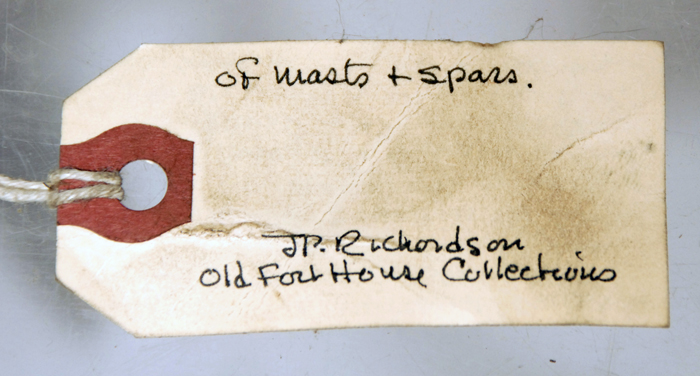 of masts + spars.
J.P. Richardson
Old Fort House Collections